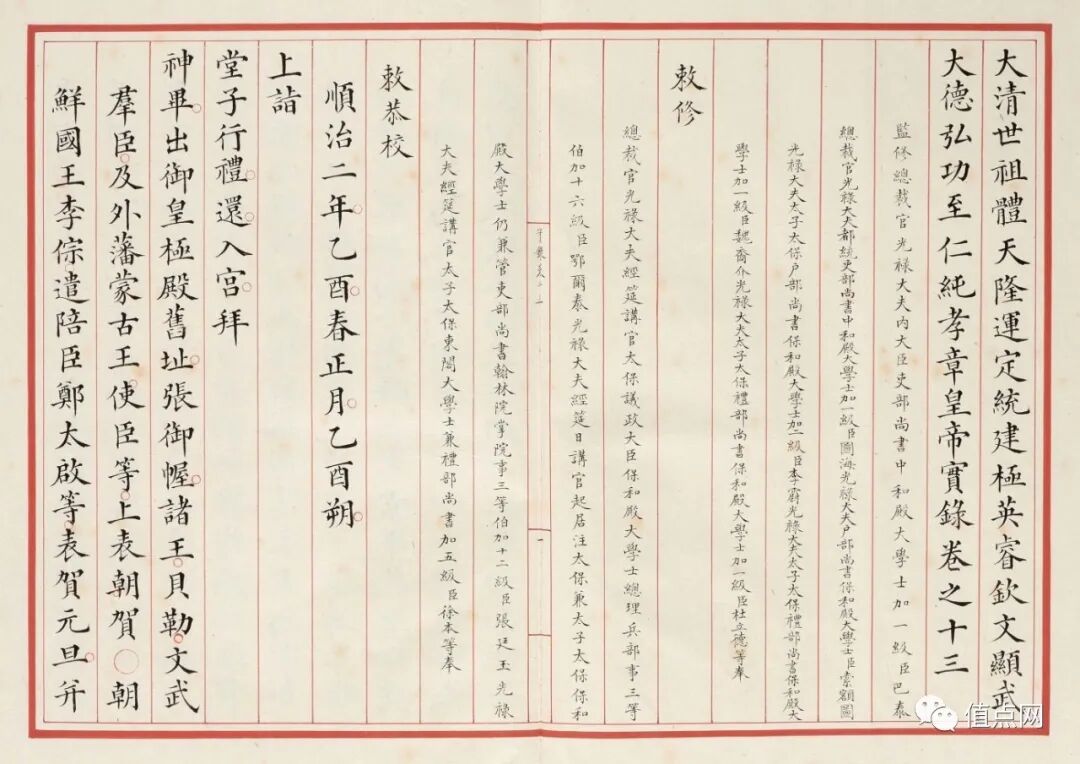 大清世祖體天隆運定統建極英睿欽文顯武
大德弘功至仁純孝章皇帝實錄卷之十三
監修總裁官光祿大夫內大臣吏部尚書中和殿大學士加一級臣巴泰
總裁官光祿大夫都統吏部尚書中和殿大學士加一級臣圖海光祿大夫戶部尚書保和殿大學士臣索額圖
光祿大夫太子太保戶部尚書保和殿大學士加二級臣李霨光祿大夫太子太保禮部尚書保和殿大
學士加一級臣魏裔介光祿大夫太子太保禮部尚書保和殿大學士加一級臣杜立德等奉
敕修
總裁官光祿大夫經筵講官太保議政大臣保和殿大學士總理兵部事三等
伯加十六級臣鄂爾泰光祿大夫經筵日講官起居注太保兼太子太保保和
殿大學士仍兼管吏部尚書翰林院掌院事三等伯加十二級臣張廷玉光祿
大夫經筵講官太子太保東閣大學士兼禮部尚書加五級臣徐本等奉
敕恭校
順治二年乙酉春正月乙酉朔
上詣
堂子行禮還入宮拜
神畢出御皇極殿舊址張御幄諸王貝勒文武
羣臣及外藩蒙古王使臣等上表朝賀〇朝
鮮國王李倧遣陪臣鄭太啟等表賀元旦并
值点网